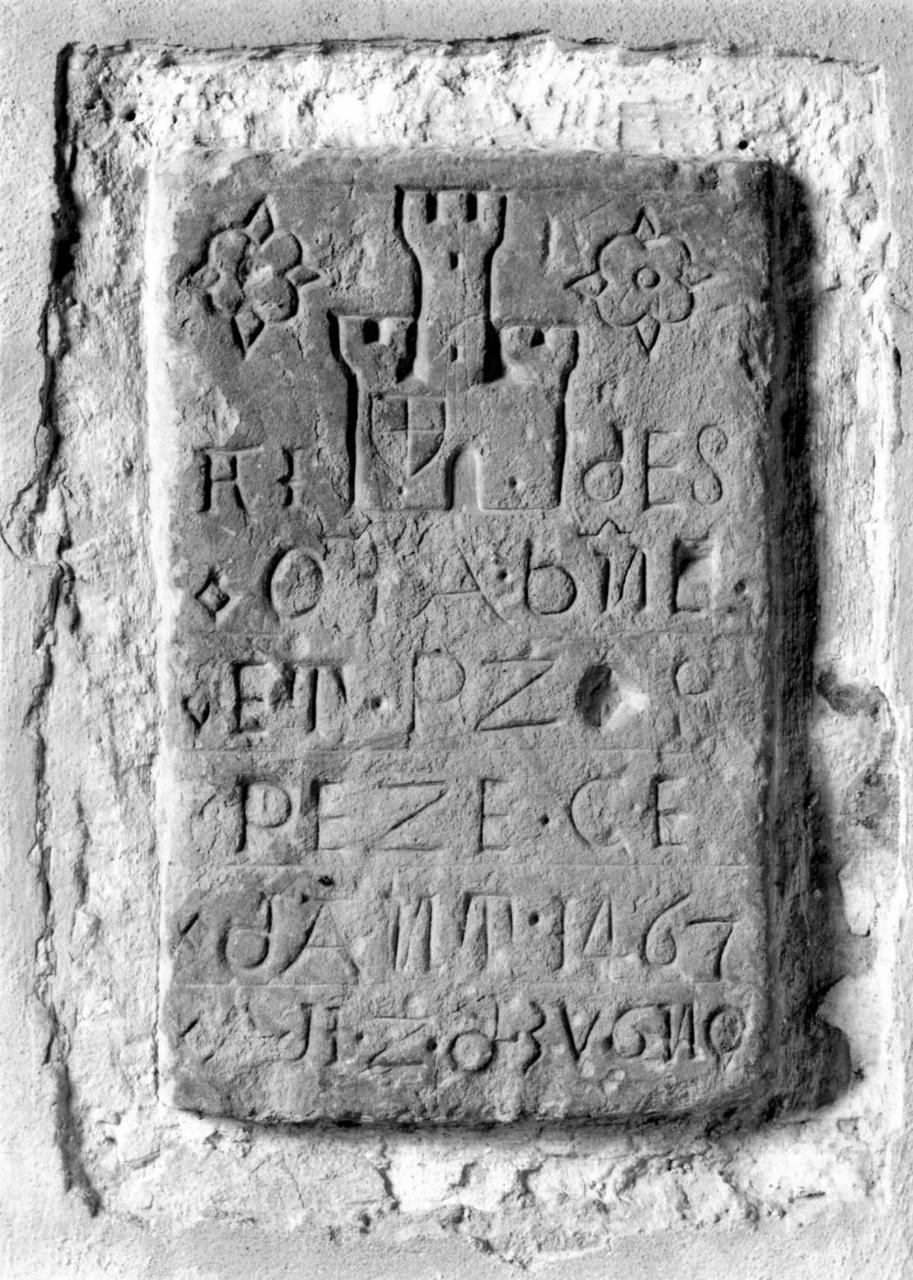 HI dES
OTA bNE
ET · PZ P O
PEZE · CE
dANT · 1467
JI · Z O d ZVGNO